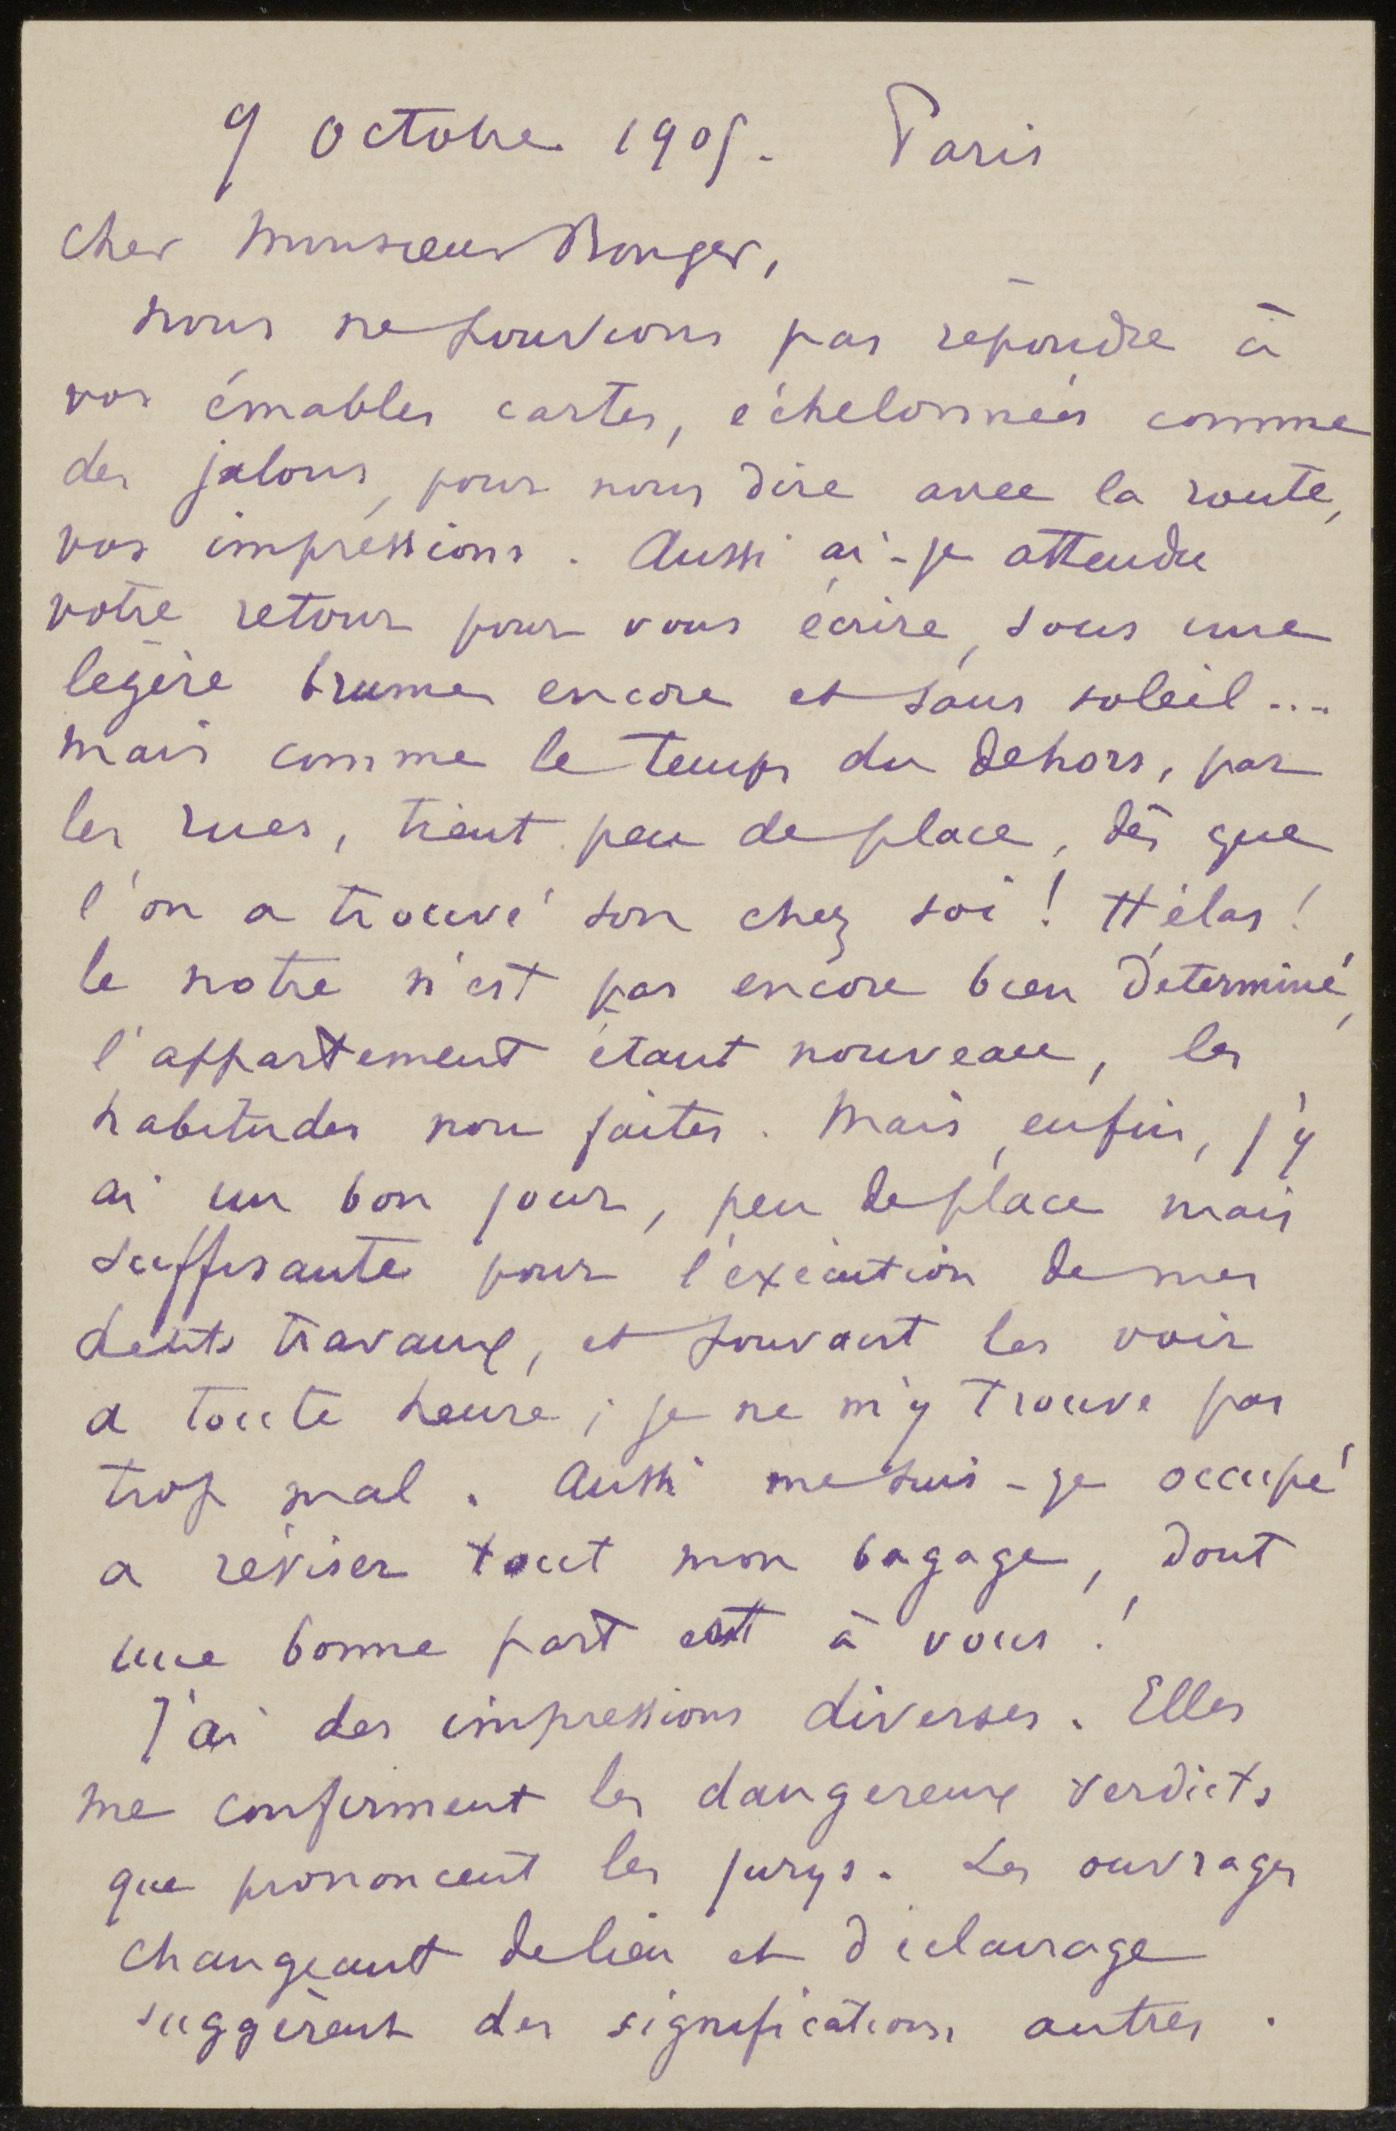 9 Octobre 1905. Paris
Cher Monsieur Bonger,
nous ne pouvions pas répondre à
vos émables cartes, échelonnées comme
des jalons, pour nous dire avec la route,
vos impréssions. Aussi ai-je attendu
votre retour pour vous écrire, sous une
légère brume encore et sans soleil....
Mais comme le temps du dehors, par
les rues, tient peu de place, dès que
l'on a trouvé son chez soi ! Hélas !
le notre n'est pas encore bien déterminé,
l'appartement étant nouveau, les
habitudes non faites. Mais, enfin, j'y
ai un bon jour, peu de place mais
suffisante pour l'éxécution de mes
petits travaux, et pouvant les voir
a toute heure ; je ne m'y trouve pas
trop mal. Aussi me suis-je occupé
a réviser tout mon bagage, dont
une bonne part est à vous !
J'ai des impressions diverses. Elles
me confirment les dangereux verdicts
que prononcent les jurys. Les ouvrages
changeant de lieu et d'éclairage
suggèrent des significations autres.